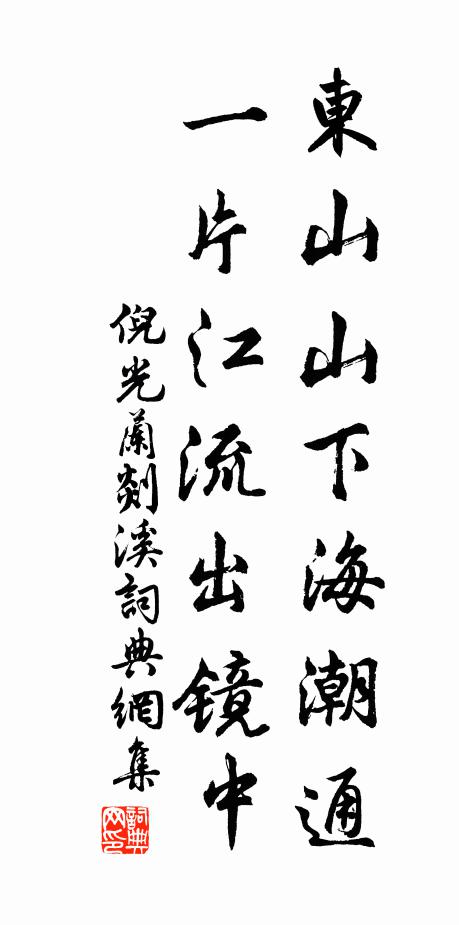 東山山下海潮通
一片江流出鏡中
倪光蘭剡溪詞典網集
詞典
网印